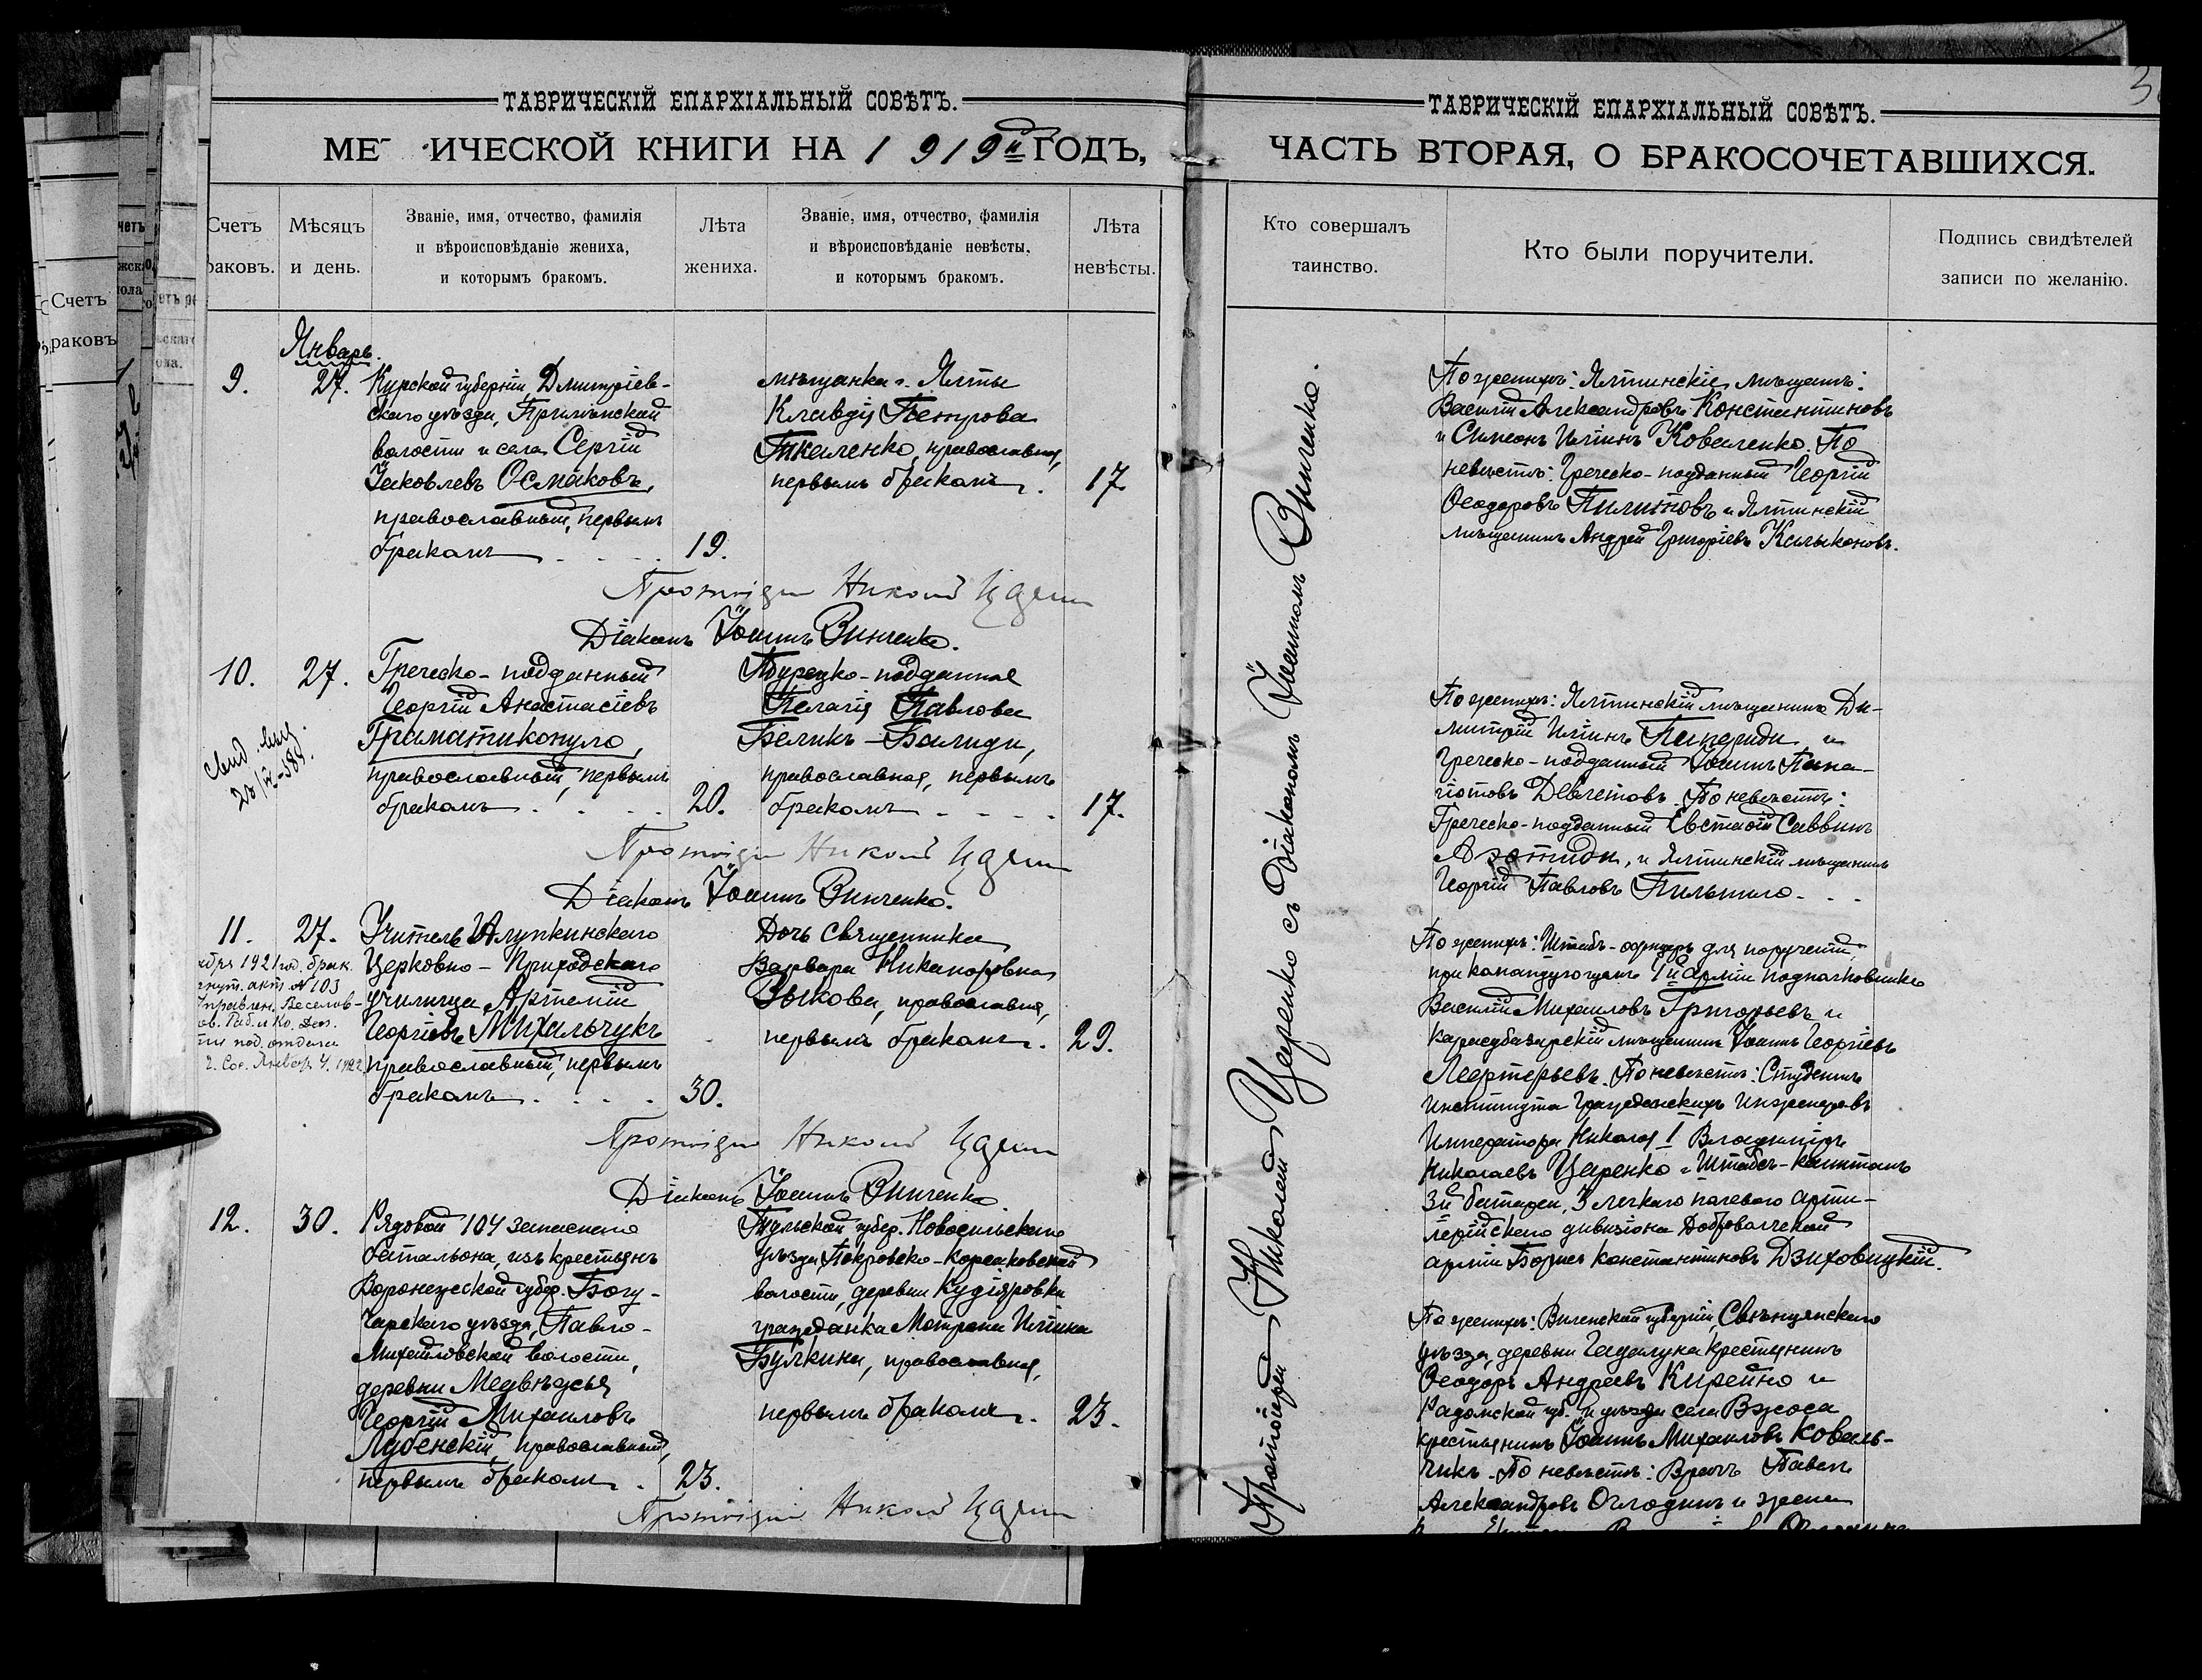 ТАВРИЧЕСКІЙ ЕПАРХІАЛЬНЫЙ СОВѢТЪ.
МЕ ИЧЕСКОЙ КНИГИ НА 1919й ГОДЪ,
Счетъ
раковъ.
Мѣсяцъ
и день.
Званіе, имя, отчество, фамилія
и вѣроисповѣданіе жениха,
и которымъ бракомъ.
Лѣта
жениха.
Званіе, имя, отчество, фамилія
и вѣроисповѣданіе невѣсты,
и которымъ бракомъ.
Лѣта
невѣсты.
Январь.
9.
27.
Курской губерніи, Дмитріев-
скаго уѣзда,
волости и села Сергій
Іаковлевъ Осмаковъ,
православный, первымъ
бракомъ
19.
мѣщанка г. Ялты
Клавдія Петрова
Ткаленко, православная,
первымъ бракомъ.
17.
Протоіерей Николай Царенко
Діаконъ Іоаннъ Винченко.
10.
27.
Греческо-подданный
Георгій Анастасіевъ
Граматикопуло,
православный, первымъ
бракомъ
20.
Турецко-подданная
Пелагія Павлова
Беликъ-Балиди,
православная, первымъ
бракомъ
17.
Протоіерей Николай Царенко
Діаконъ Іоаннъ Винченко.
11.
27.
Учитель Алупкинскаго
Церковно-Приходскаго
училища Артемій
Георгіевъ Михальчукъ
православный, первымъ
бракомъ
30.
ября 1921 год. брак.
акт № 103
Дочь священника
Варвара Никаноровна
Зыкова, православная,
первымъ бракомъ.
29.
Протоіерей Николай Царенко
Діаконъ Іоаннъ Винченко
12.
30.
Рядовой 104 запаснаго
баталіона, изъ крестьянъ
Воронежской губер. Богу-
чарскаго уѣзда, Павло-
Михайловской волости,
деревни Медвѣжья
Георгій Михаиловъ
Лубенскій, православный,
первымъ бракомъ.
23.
Тульской губер. Новосильскаго
уѣзда, Покровско-Корсаковской
волости, деревни Кудіяровки
гражданка Матрона Иліина
Булкина, православная,
первымъ бракомъ.
23.
Протоіерей Николай Царенко
ТАВРИЧЕСКІЙ ЕПАРХІАЛЬНЫЙ СОВѢТЪ.
ЧАСТЬ ВТОРАЯ, О БРАКОСОЧЕТАВШИХСЯ.
Кто совершалъ
таинство.
Кто были поручители.
Подпись свидѣтелей
записи по желанію.
Протоіерей Николай Царенко съ Діакономъ Іоанномъ Винченко.
По женихѣ: Ялтинскіе мѣщане:
Василій Александровъ Константиновъ
и Симеонъ Иліинъ Коваленко. По
невѣстѣ: Греческо-подданный Георгій
Ѳеодоровъ Пилитовъ и Ялтинскій
мѣщанинъ Андрей Григоріевъ Калыконовъ.
По женихѣ: Ялтинскій мѣщанинъ Ди-
митрій Иліинъ Папериди и
Греческо-подданный Іоаннъ Пана-
іотовъ Девлетовъ. По невѣстѣ:
Греческо-подданный Евстаѳій Саввинъ
и Ялтинскій мѣщанинъ
Георгій Павловъ
По женихѣ: Штабъ-офицеръ для порученій
при командующемъ 1й арміи подполковникъ
Василій Михаиловъ Григорьевъ и
Карасубазарскій мѣщанинъ Іоаннъ Георгіевъ
По невѣстѣ: Студентъ
Института Гражданскихъ Инженеровъ
Императора Николая I Владиміръ
Николаевъ Царенко и Штабсъ-капитанъ
3й батареи, 3 легкаго полевого арти-
лерійскаго дивизіона Добровольческой
арміи Борисъ Константиновъ Дзиховицкій.
По женихѣ: Виленской губерніи, Свѣнцянскаго
уѣзда, деревни Гадалука крестьянинъ
Ѳеодоръ Андреевъ Кирейно и
Радомской губ. и уѣзда села Вжоса
крестьянинъ Іоаннъ Михаиловъ Коваль-
чикъ. По невѣстѣ: Врачъ Павелъ
Александровъ Оглодинъ и жена
Счетъ
раковъ